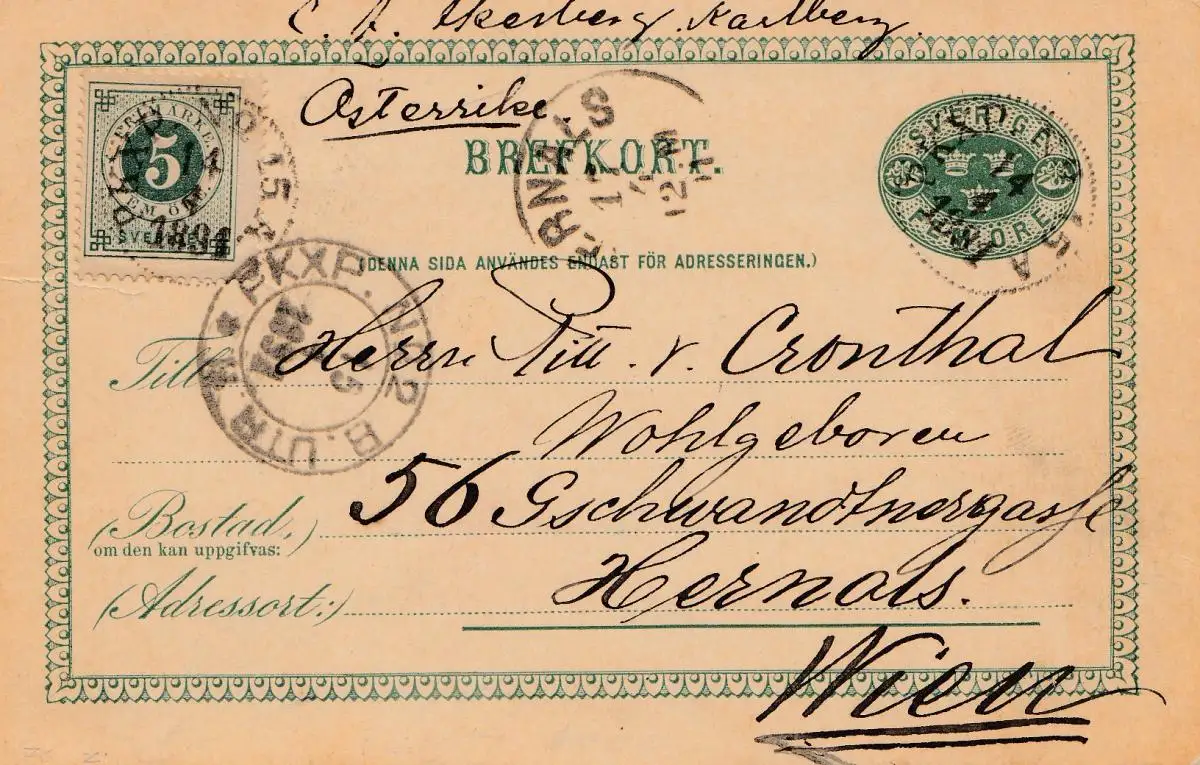 C. A. Akerberg. Karlberg.
Österrike.
FRIMÄRKE
5
FEM ÖRE
SVERIGE
PKXP. No 15 A
14
1891
BREFKORT.
HERNALS
17
12 M
SVERIGE
FEM ÖRE
14
1891
15 A
(DENNA SIDA ANVÄNDES ENDAST FÖR ADRESSERINGEN.)
PKXP. Nr. 2 B. UTR.
15
Till Herrn Pitt. v. Cronthal
Wohlgeboren
(Bostad,
om den kan uppgifvas:) 56 Gschwandtnergasse
(Adressort:) Hernals.
Wien